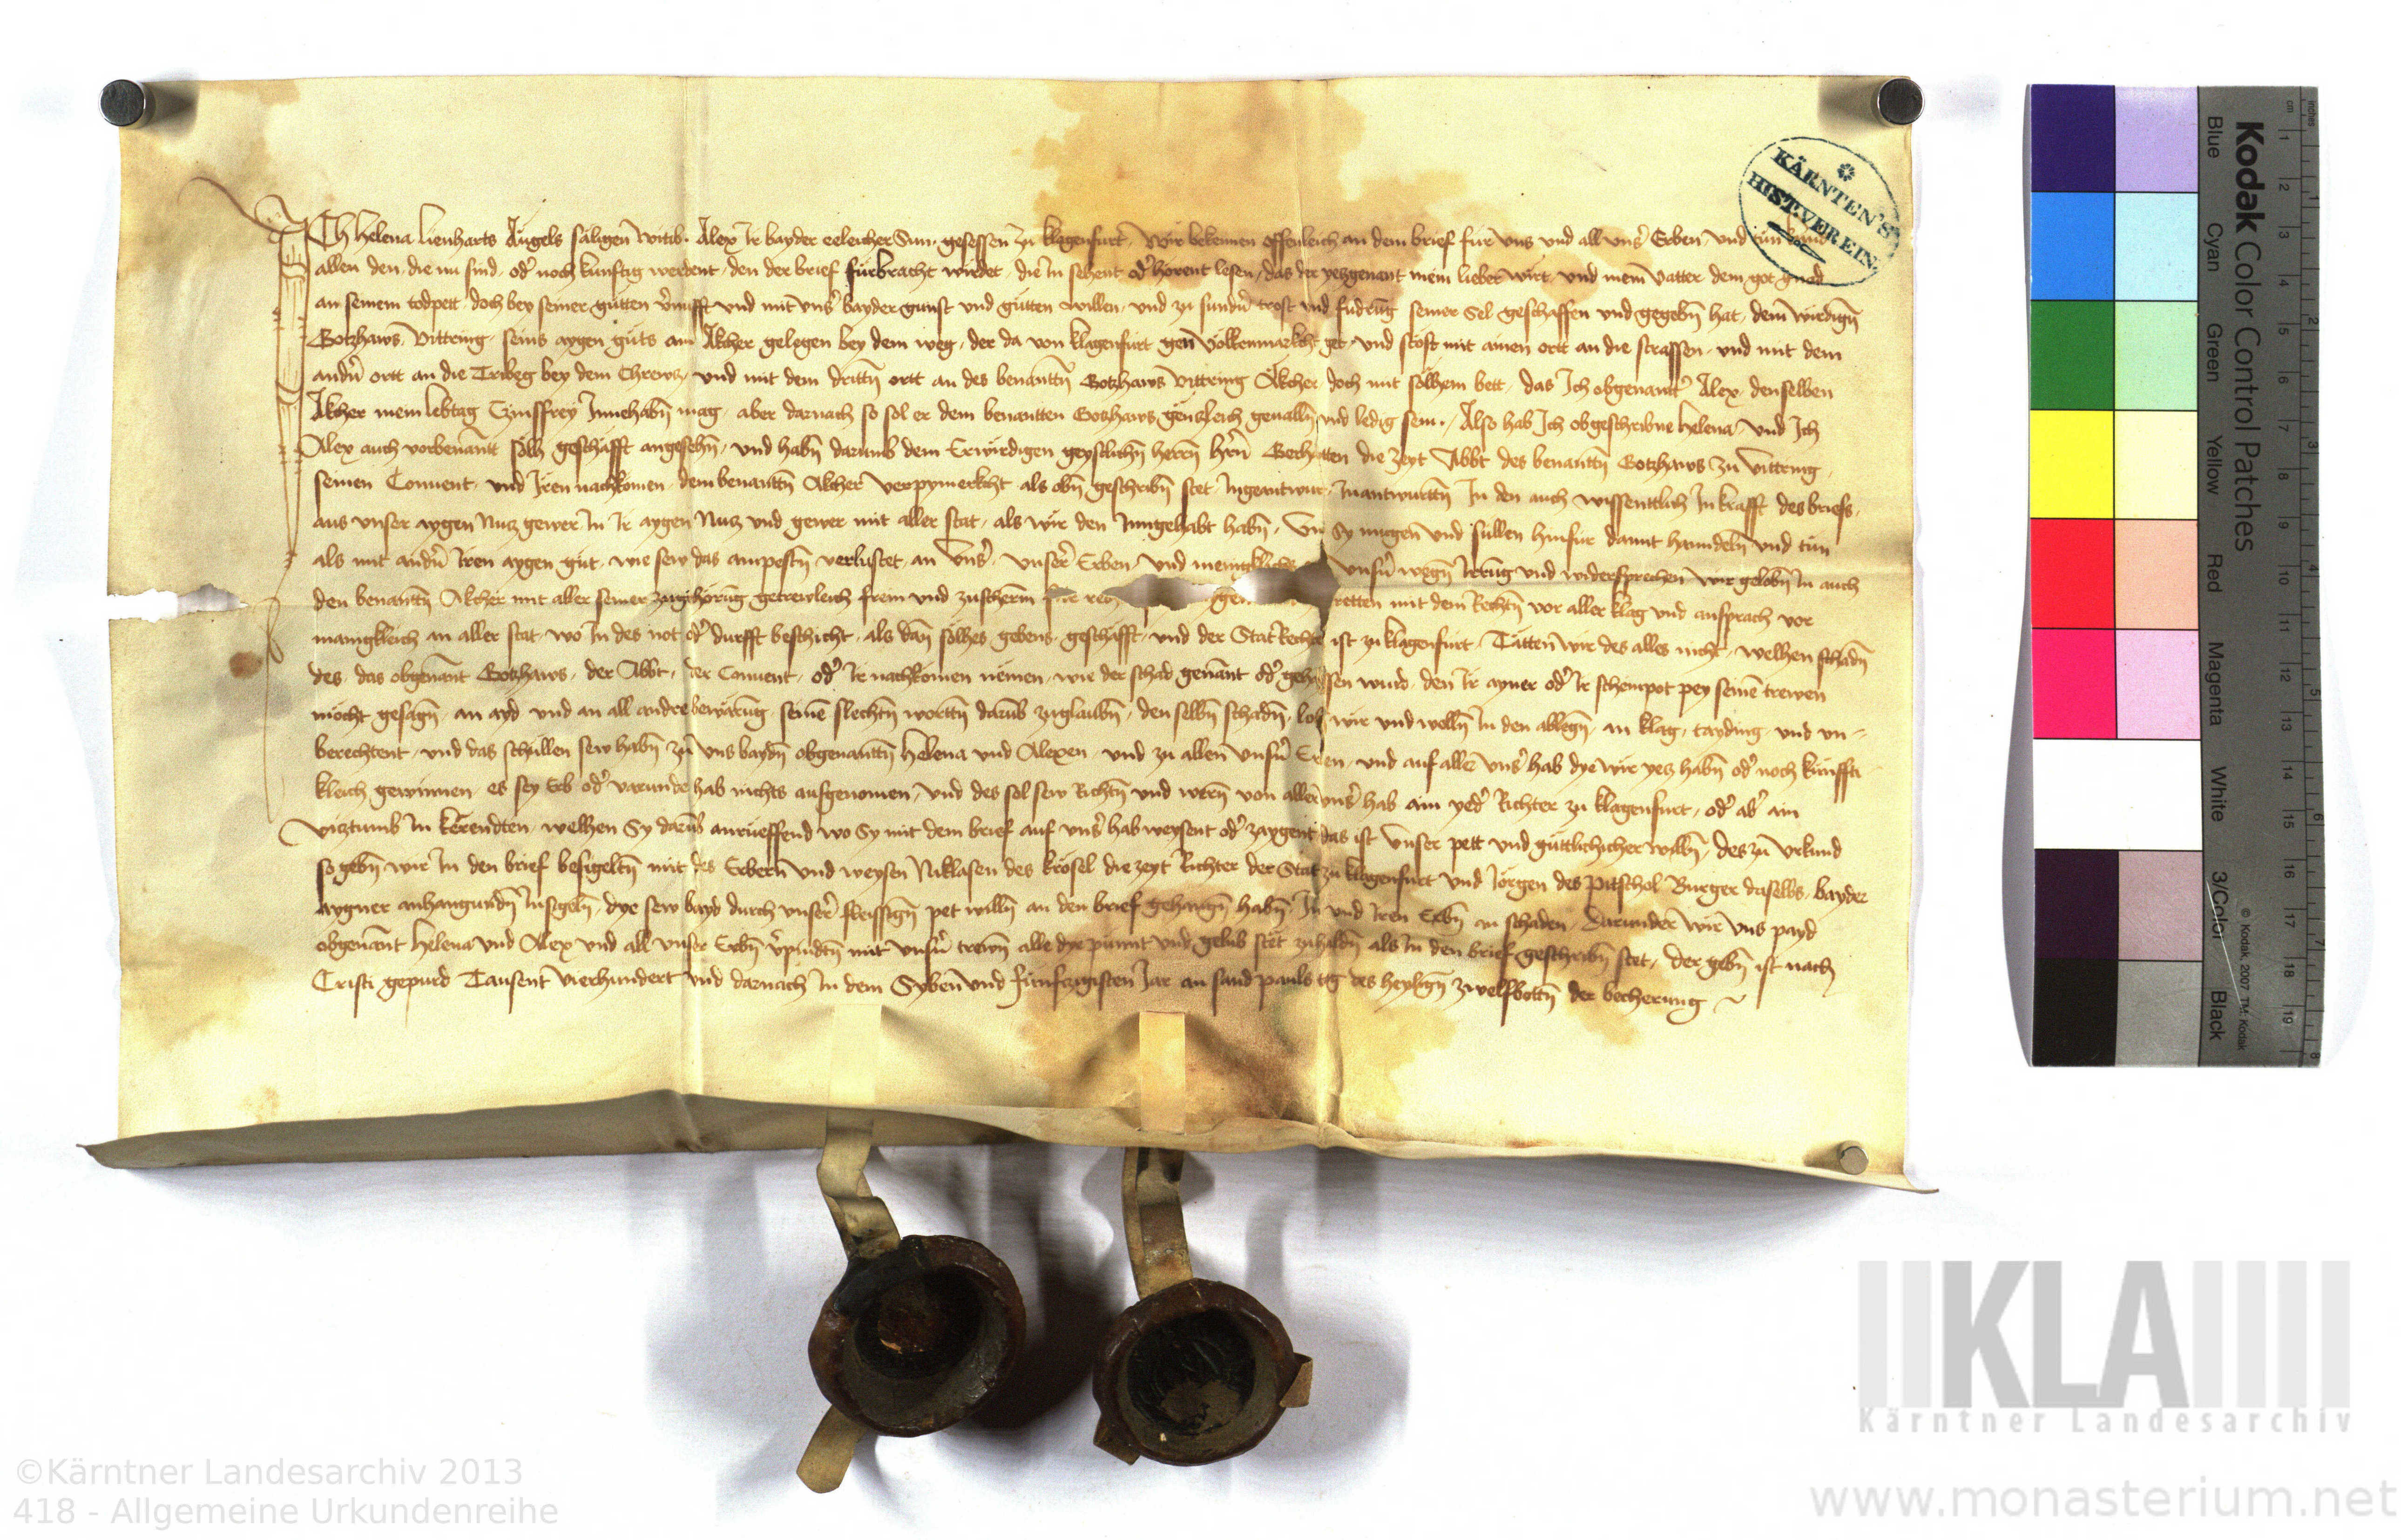 Ich Helena Lienharts Angels saligen witib. Alex Ir bayder eeleicher Sun. gesessen zu Klagenfurt. Wir bekennen offenleich an dem brief fur uns und all unser Erben. und tun kund
allen den. die nu sind. oder noch kunftig werdent. den der brief furbracht wirdet. die In sehent oder horent lesen. das der yezgenant mein lieber wirt. und mein vatter dem got gnad
an seinem todpett. doch bey seiner gutten vernufft und mit unser bayder gunst und gutten willen. und zu sundern trost und fudrung seiner Sel geschaffen und gegebn hat. dem wirdign
Gotzhaws Vittring. seins aygen guts ain Akher gelegen bey dem weg. der da von Klagenfurt gen Volkenmarkht get. und stost mit ainen ortt an die strassen. und mit dem
andern ortt an die Tribeg bey dem Chrewz. und mit dem drittn ortt an des benanttn Gotzhaws Vittring Akher. doch mit solhem bett. das Ich obgenantt Alex. denselben
Akher mein lebtag Zinssfrey Innehabn mag. aber darnach so sol er dem benantten Gotzhaws genzleich geualln und ledig sein. Also hab Ich obgeschribne Helena und Ich
Alex auch vorbenantt solh geschafft angesehn. und habn darumb dem Erwirdigen geystlichn herrn hern Gerhartten die zeyt Abbt des benanttn Gotzhaws zu Vittring.
seinen Conuent. und Iren nachkomen. dem benanttn Akher verpymerkcht als obn geschribn stet. Ingeantwurt. Inantwurttn In den auch wissentlich In krafft des briefs.
aus unser aygen Nuz gewer In Ir aygen Nuz und gewer mit aller stat. als wir den Inngehabt habn. Sy mugen und sullen hinfur damit hanndeln und tun
als mit andern Iren aygen gut. wie sew das ampestn verlustet. an unser. unserer Erben. und unsern wegn Irrung und widersprechen wir gelobn In auch
den benanttn Akher mit aller seiner zugehorung getrewleich frein und zuscherm retten mit dem Rechtn vor aller klag und ansprach vor
manigkleich an aller stat. wo In des not oder durfft beschicht. als dan solhes gebens. geschafft. und der Stat Rechtn ist zu Klagenfurt. Tatten wir des alles nicht. welhen schadn
des. das obgenant Gotzhaws. der Abbt. der Conuent. oder Ir nachkomen nemen. wie der schad genant oder gehaissen wurd. den Ir ayner oder Ir scheinpot pey seinen trewen
mocht gesagn. an ayd und an all andre bewarung. seinen slechtn worttn darumb zuglaubn. denselbn schadn. wir und welln In den ablegn. an klag. tayding und un-
berechtent. und das schullen sew habn zu uns baydn obgenanttn Helena und Alexen. und zu allen unsern Erben. und auf aller unser hab dye wir yez habn oder noch kunffti
kleich gewinnen. es sey Erb oder varunde hab nichts ausgenomen. und des sol sew Richtn und wern von aller unser hab ain yeder Richter zu Klagenfurt. oder aber ain
viztumb In Kerendten. welhen Sy darumb anrueffend wo Sy mit dem brief auf unser hab weysent oder zaygent das ist unser pett und guttlichicher willn. des zu urkund
so gebn wir In den brief besigeltn mit des Erbern und weysen Niklasen des Krosel die zeyt Richter der Stat zu Klagenfurt und Jorgen des Pitschol Burger daselbs. bayder
aygner anhangundn Insigeln. dye sew bayd durch unserer fleissign pet willn an den brief gehangn habn. In und Iren Erbn an schaden. Darunder wir uns payd
obgenant Helena und Alex und all unser Erbn verpindtn mit unsern trewn alle dye puint und gelub stet zuhaldn als In den brief geschribn stet. der gebn ist nach
Cristi gepurd Tausent vierhundert und darnach In dem Syben und funfczigisten Jar an sand pauls tg des heylign zwelfbottn der becherung
KÄRNTEN'S
HIST. VEREIN
Kodak Color Control Patches
Blue Cyan Green Yellow Red Magenta White 3/Color Black
© Kodak, 2007 TM: Kodak
inches
cm
1 2 3 4 5 6 7 8 9 10 11 12 13 14 15 16 17 18 19
1 2 3 4 5 6 7 8
KLA
Kärntner Landesarchiv
©Kärntner Landesarchiv 2013
418 - Allgemeine Urkundenreihe
www.monasterium.net